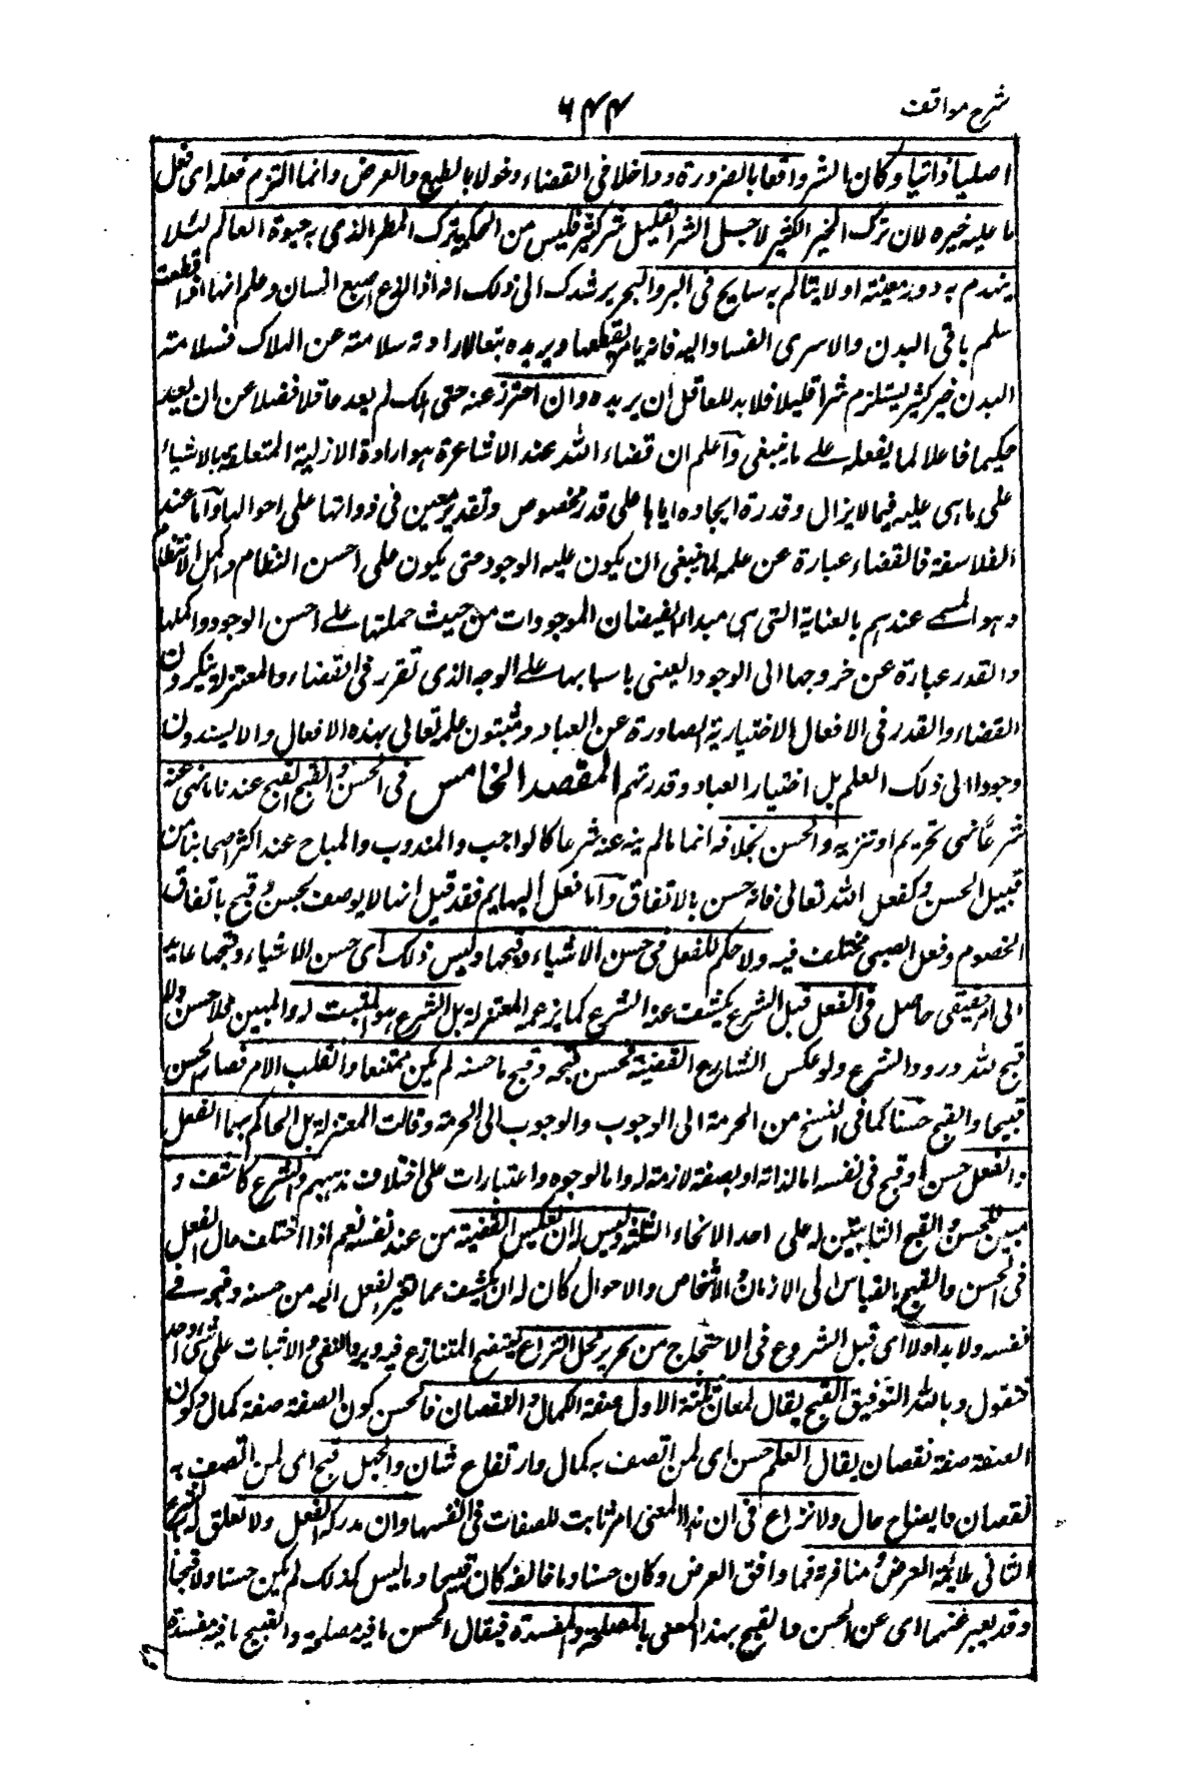 شرح مواقف
۶۴۴
اصلیا ذاتیا وکان الشر واقعا بالضرورة وداخلا فی القضاء دخولا بالطبع والعرض وانما التزم فعله ای فعل
ما علیه خیره لان ترک الخیر الکثیر لاجل الشر القلیل شر کثیر فلیس من الحکمة ترک المطر الذی به حیوة العالم لئلا
ینهدم به دور معینة او لا یتالم به سایح فی البر والبحر یرشدک الی ذلک انه اذا لذع اصبع انسان وعلم انها اذا قطعت
سلم باقی البدن والا سری الفساد الیه فانه یامر بقطعها ویریده تبعا لارادته سلامته عن الهلاک فسلامة
البدن خیر کثیر یستلزم شرا قلیلا فلا بد للعاقل ان یریده وان احترز عنه حتی هلک لم یعد عاقلا فضلا عن ان یعد
حکیما فاعلا لما یفعله علی ما ینبغی وآعلم ان قضاء الله عند الاشاعرة هو ارادة الازلیة المتعلقة بالاشیاء
علی ما هی علیه فیما لا یزال وقدرة ایجاده ایاها علی قدر مخصوص وتقدیر معین فی ذواتها علی احوالها وآما عند
الفلاسفة فالقضاء عبارة عن علمه لما ینبغی ان یکون علیه الوجود حتی یکون علی احسن النظام واکمل الانتظام
وهو المسمی عندهم بالعنایة التی هی مبداء لفیضان الموجودات من حیث جملتها علی احسن الوجود واکملها
والقدر عبارة عن خروجها الی الوجود العینی باسبابها علی الوجه الذی تقرر فی القضاء والمعتزلة ینکرون
القضاء والقدر فی الافعال الاختیاریة الصادرة عن العباد ویثبتون علمه تعالی بهذه الافعال ولا یسندون
وجودها الی ذلک العلم بل اختیار العباد وقدرتهم المقصد الخامس فی الحسن والقبح القبیح عندنا ما نهی عنه
شرعا نهی تحریم او تنزیه والحسن بخلافه انما ما لم ینه عنه شرعا کالواجب والمندوب والمباح عند اکثر اصحابنا من
قبیل الحسن وکفعل الله تعالی فانه حسن بالاتفاق وآما فعل البهایم فقد قیل انها لا یوصف بحسن وقبح باتفاق
الخصوم وفعل الصبی مختلف فیه ولا حکم للعقل فی حسن الاشیاء وقبحها ولیس ذلک ای حسن الاشیاء وقبحها عاید
الی امر حقیقی حاصل فی الفعل قبل الشرع یکشف عنه الشرع کما یزعمه المعتزلة بل الشرع هو المثبت له والمبین فلا حسن ولا
قبح لله ورود الشرع ولو عکس الشارع القضیة فحسن ما قبحه وقبح ما حسنه لم یکن ممتنعا وانقلب الامر فصار الحسن
قبیحا والقبیح حسنا کما فی النسخ من الحرمة الی الوجوب والوجوب الی الحرمة وقالت المعتزلة بل الحاکم بهما العقل
والفعل حسن او قبح فی نفسه اما لذاته او لصفة لازمة له واما لوجوه واعتبارات علی اختلاف مذهبهم والشرع کاشف و
مبین للحسن والقبح الثابتین له علی احد الانحاء الثلثة ولیس له ان یعکس القضیة من عند نفسه نعم اذا اختلف حال الفعل
فی الحسن والقبح بالقیاس الی الازمان والاشخاص والاحوال کان له ان یکشف عما تغیر الفعل الیه من حسنه وقبحه فی
نفسه ولا بد اولا ای قبل الشروع فی الاحتجاج من تحریر محل النزاع لیتضح المتنازع فیه ویرد النفی والاثبات علی شیء واحد
فنقول وبالله التوفیق القبح یقال لمعان ثلثة الاول صفة الکمال والنقصان فالحسن کون الصفة صفة کمال وکون
الصفة صفة نقصان یقال العلم حسن ای لمن اتصف به کمال وارتفاع شان والجهل قبیح ای لمن اتصف به
نقصان واتضاع حال ولا نزاع فی ان هذا المعنی امر ثابت للصفات فی انفسها وان مدرکه العقل ولا تعلق له بالشرع
الثانی ملائمة الغرض ومنافرة فما وافق الغرض وکان حسنا وما خالفه کان قبیحا وما لیس کذلک لم یکن حسنا ولا قبیحا
وقد یعبر عنهما ای عن الحسن والقبح بهذا المعنی بالمصلحة والمفسدة فیقال الحسن ما فیه مصلحة والقبیح ما فیه مفسدة